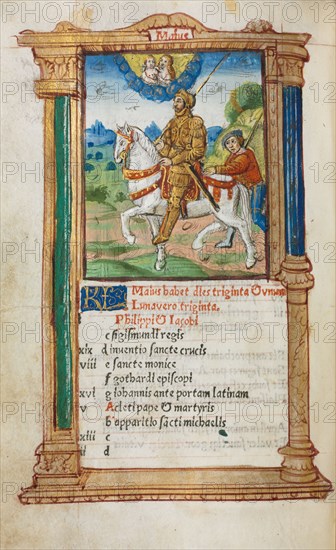 Maius
KL Maius habet dies triginta & vnum
Luna vero triginta.
Philippi & Iacobi
c sigismundi regis
xix d inuentio sancte crucis
viii e sancte monice
f gothardi episcopi
xvi g iohannis ante portam latinam
v A cleti pape & martyris
b apparitio sacti michaelis
xiii c
ii d